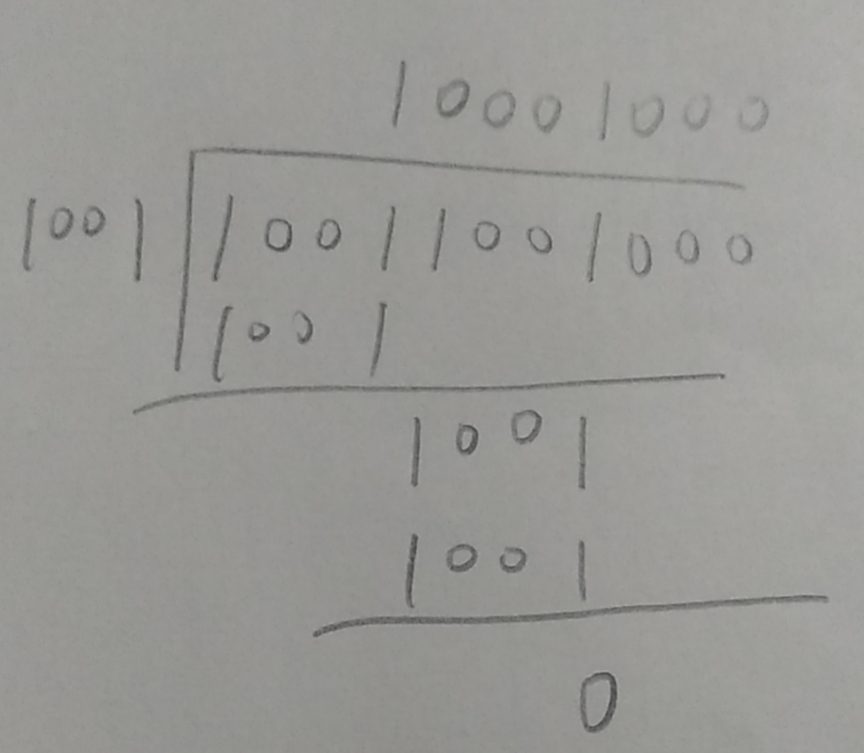 10001000
1001 10011001000
1001
1001
1001
0